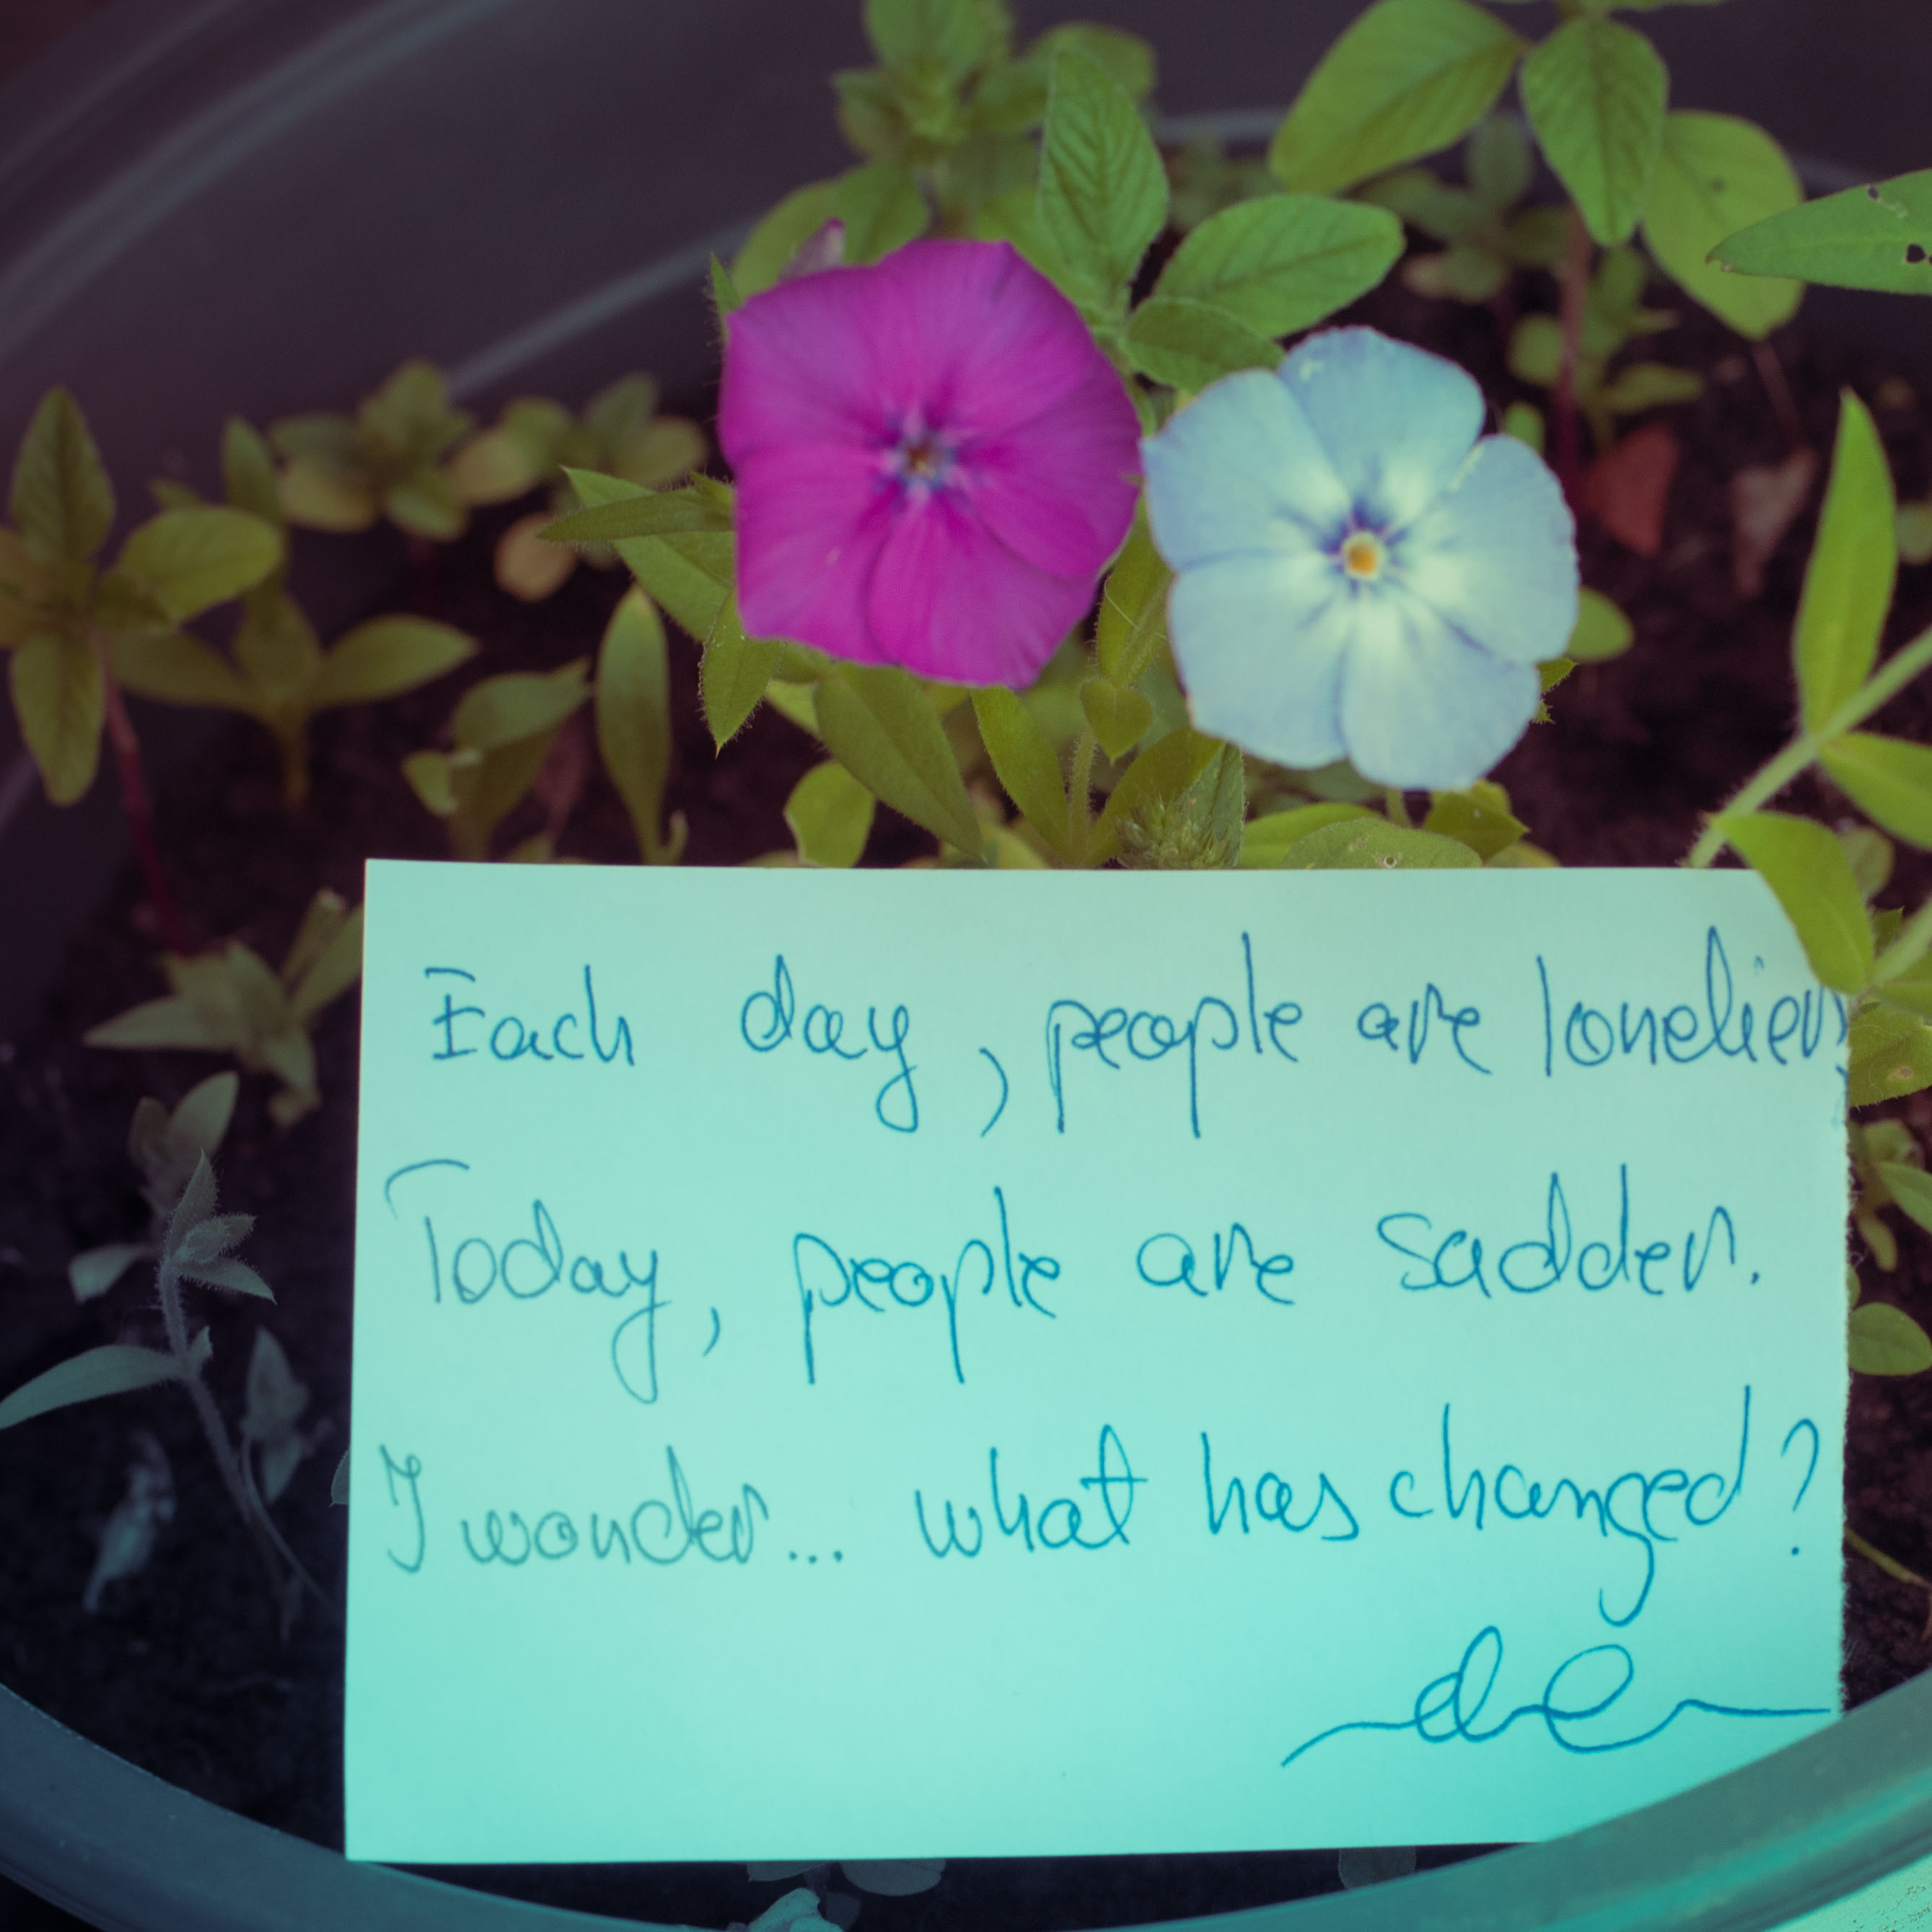 Each day, people are lonelier,
Today, people are sadder.
I wonder... what has changed?
de